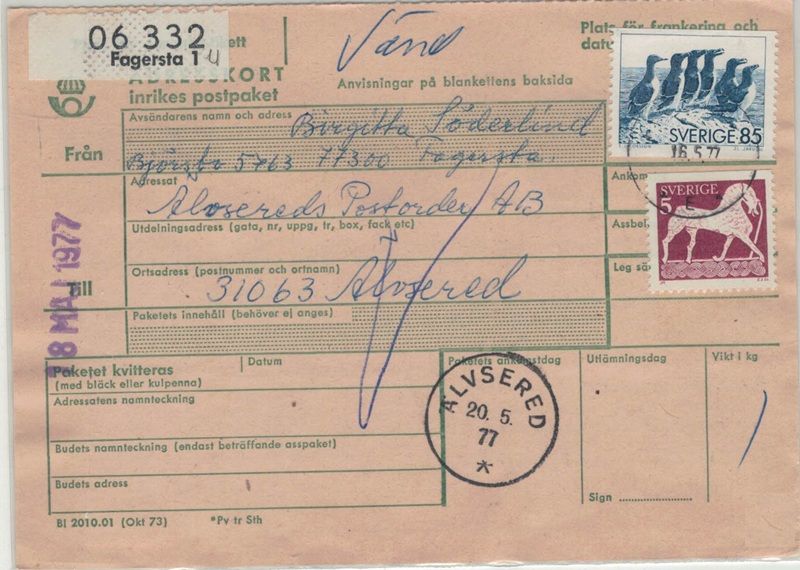 06 332
Fagersta 1 4
ett
Vänd
Plats för frankering och
datu
ADRESSKORT
inrikes postpaket
Anvisningar på blankettens baksida
SVERIGE 85
Avsändarens namn och adress
Birgitta Söderlind
Från
Björsbo 5763 77300 Fagersta.
16.5.77
Adressat
Ankom
Alvsereds Postorder AB
SVERIGE
5
Utdelningsadress (gata, nr, uppg, tr, box, fack etc)
Assbel
Ortsadress (postnummer och ortnamn)
Leg sä
Till
31063 Älvsered
18 MAJ 1977
Paketets innehåll (behöver ej anges)
Paketet kvitteras
(med bläck eller kulpenna)
Datum
Paketets ankomstdag
Utlämningsdag
Vikt i kg
Adressatens namnteckning
ÄLVSERED
20. 5.
77
*
Budets namnteckning (endast beträffande asspaket)
Budets adress
Sign
Bl 2010.01 (Okt 73)
*Pv tr Sth